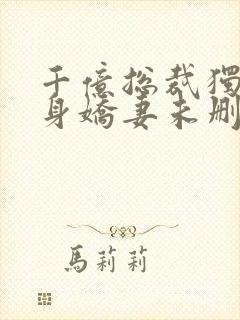 千億總裁獨
身嬌妻未刪
馬莉莉